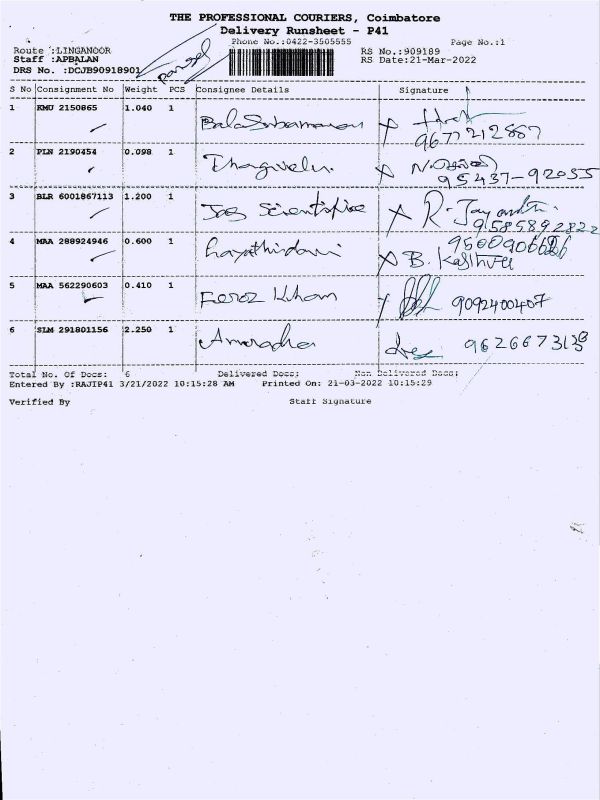 THE PROFESSIONAL COURIERS, Coimbatore
Delivery Runsheet - P41
Phone No.:0422-3505555 Page No.:1
Route :LINGANOOR RS No.:909189
Staff :APBALAN RS Date:21-Mar-2022
DRS No. :DCJB90918901
S No Consignment No Weight PCS Consignee Details Signature
1 KMU 2150865 1.040 1 Balasubramanian
9677212887
2 PLN 2190454 0.098 1 Thangavelu
95437-92055
3 BLR 6001867113 1.200 1 Jas Scientifice R-Jayanthi
9585892822
4 MAA 288924946 0.600 1 B. Kasthuri
5 MAA 562290603 0.410 1 Feroz Kham 9092400407
6 SLM 291801156 2.250 1 Amuradha
Total No. Of Docs: 6 Delivered Docs: Non Delivered Docs:
Entered By :RAJIP41 3/21/2022 10:15:28 AM Printed On: 21-03-2022 10:15:29
Verified By Staff Signature